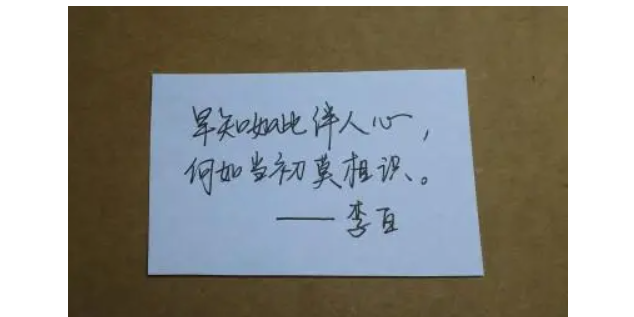 早知如此伴人心，
何如当初莫相识。
——李百